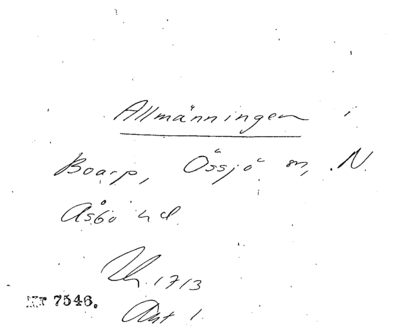 Allmänningen i
Boarp, Össjö sn, N.
Åsbo hd.
1713
Nr 7546.
Akt 1.